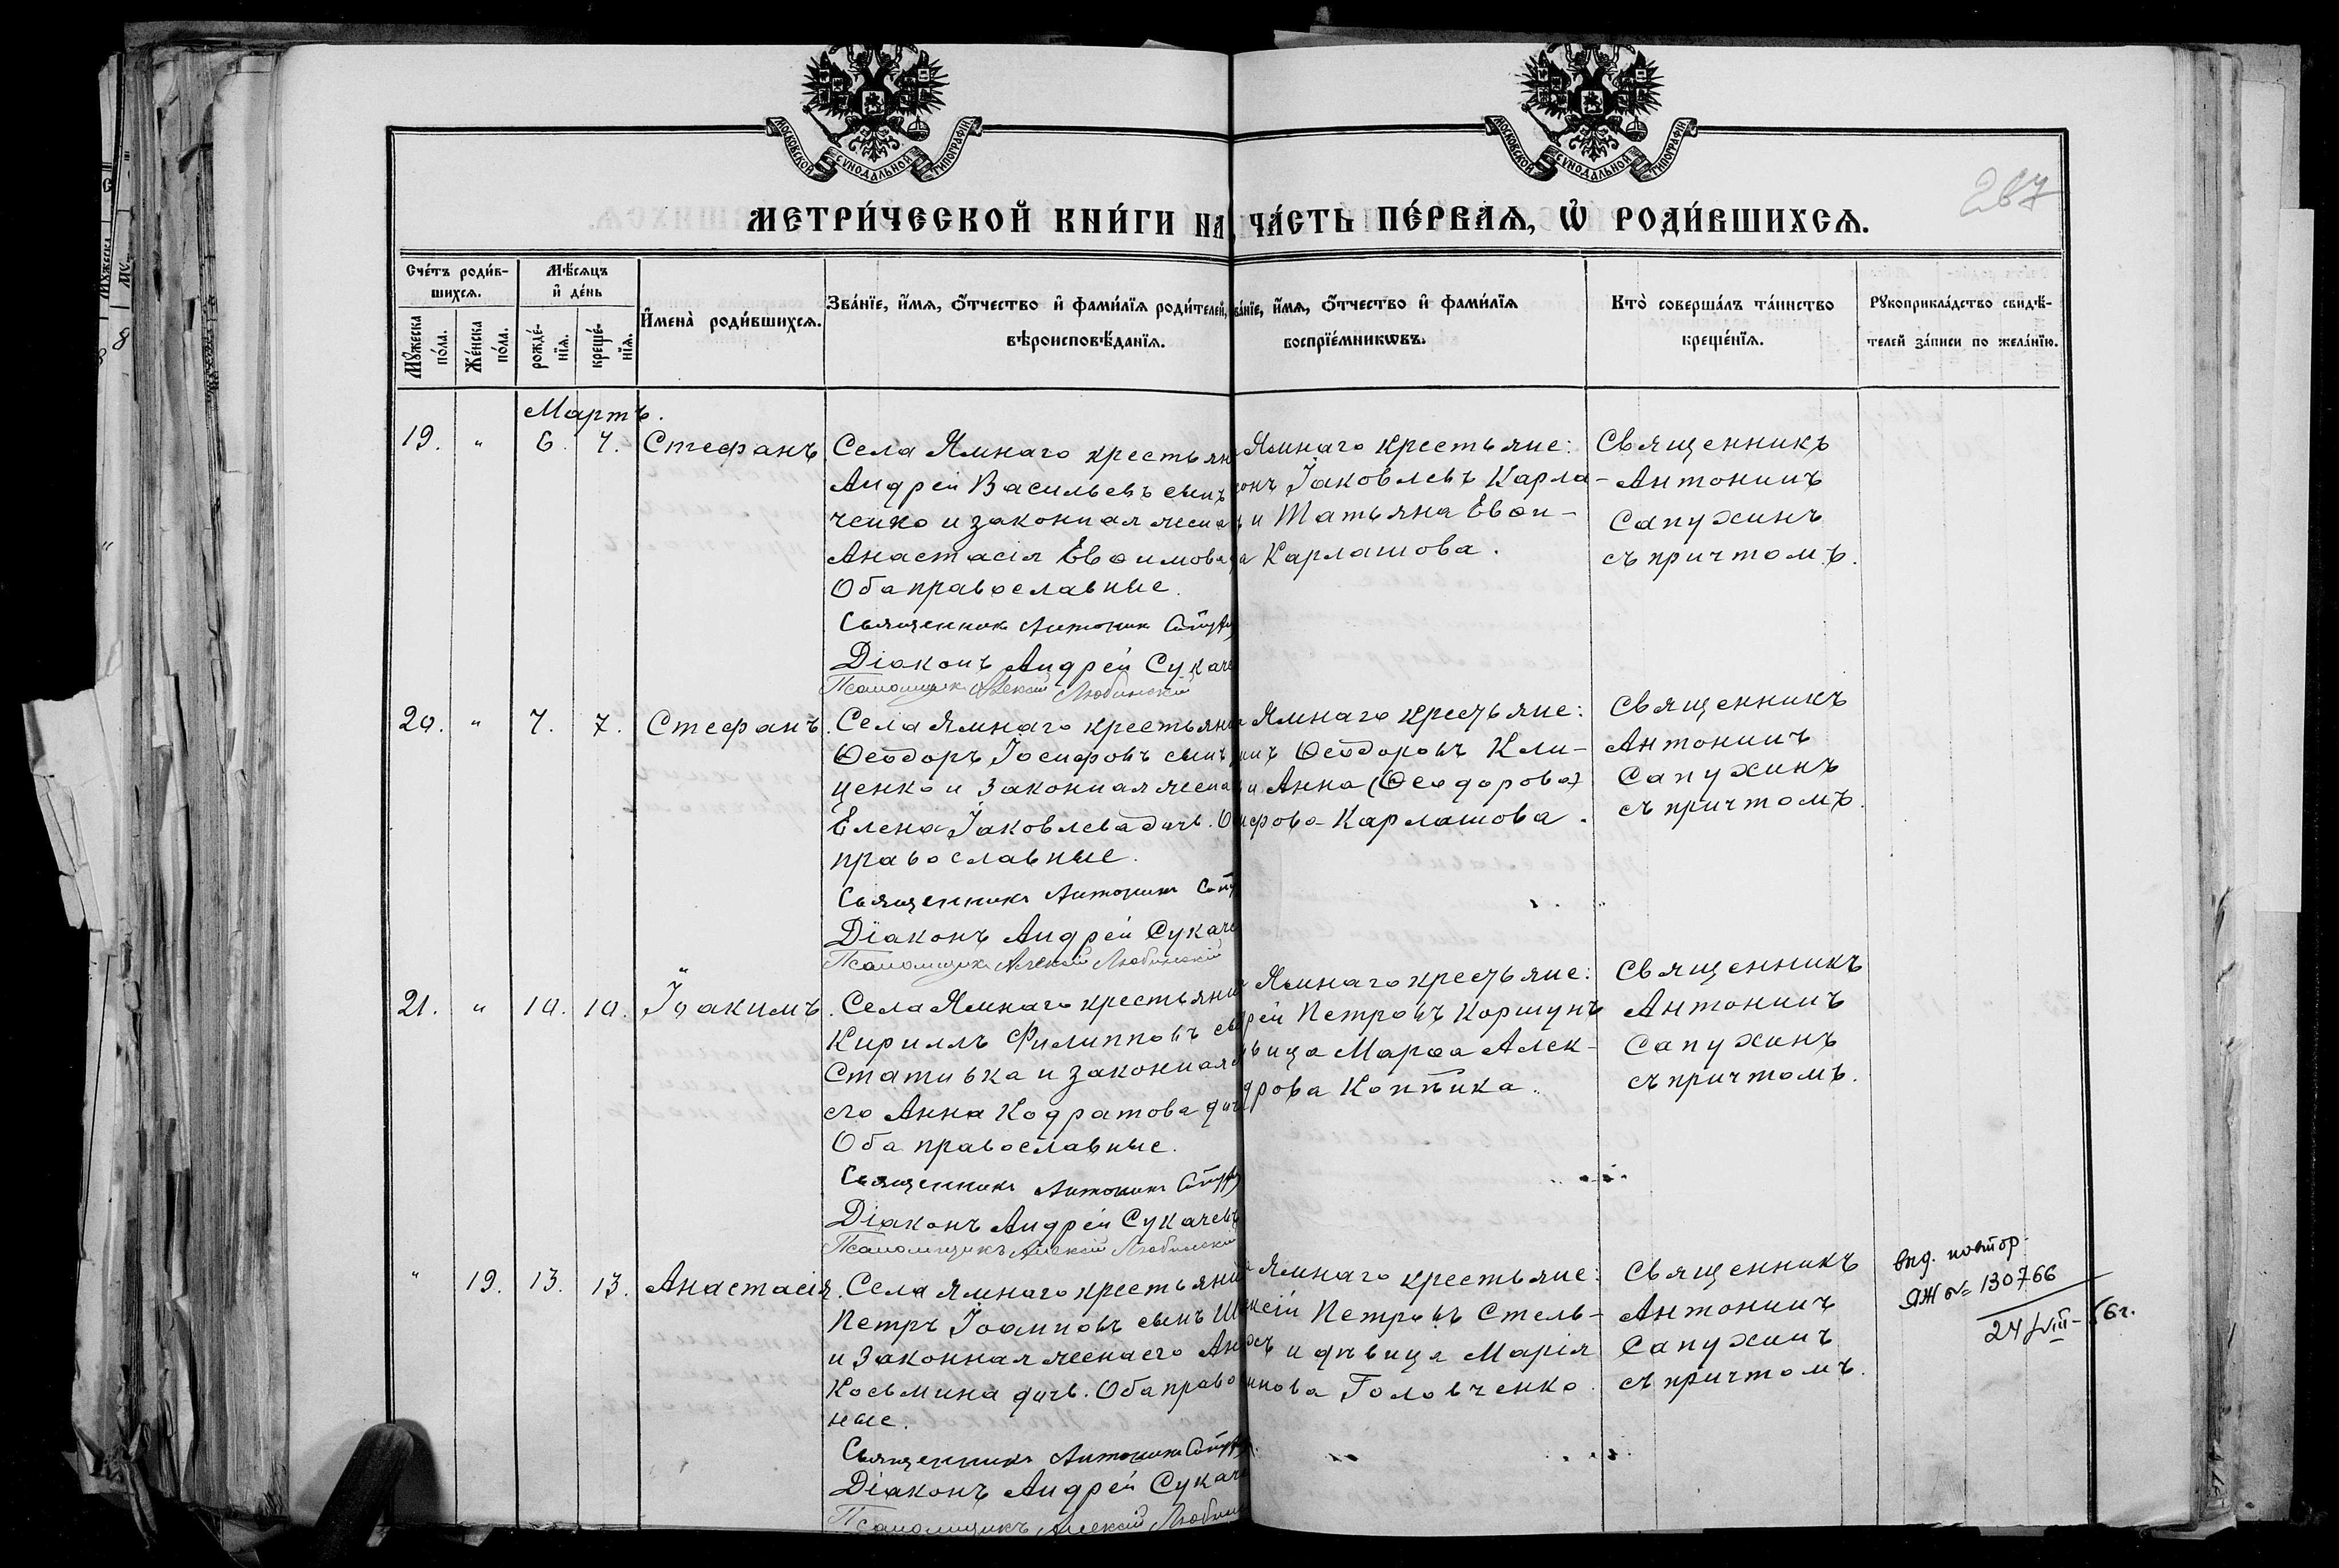 МОСКОВСКОЙ СУНОДАЛЬНОЙ ТИПОГРАФІИ.
МОСКОВСКОЙ СУНОДАЛЬНОЙ ТИПОГРАФІИ.
267
МЕТРИ́ЧЕСКОЙ КНИ́ГИ НА ЧА́СТЬ ПЕ́РВАЯ, Ѿ РОДИ́ВШИХСѦ.
Сче́тъ роди́в-
шихся.
Мꙋ́жеска
по́ла.
Же́нска
по́ла.
Мѣ́сяцъ
и҆ де́нь
рожде́-
нїя.
креще́-
нїя.
И҆мена̀ роди́вшихся.
Зва́нїе, и҆́мя, ѻ҆́тчество и҆ фами́лїя роди́телей,
вѣ́роисповѣ́данїя.
ва́нїе, и҆́мя, ѻ҆́тчество и҆ фами́лїя
воспрїе́мникѡвъ.
Кто̀ соверша́лъ та́инство
креще́нїя.
Рꙋкоприкла́дство свидѣ́-
телей за́писи по жела́нїю.
Мартъ.
19. " 6. 7. Стефанъ
Села Ямнаго крестьян
Андрей Васильевъ сынъ
ченко и законная жена
Анастасія Евѳимова
Оба православные.
Священникъ Антонинъ
Діаконъ Андрей Сукаче
Псаломщикъ Алексій Любинскій
Ямнаго крестьяне:
онъ Іаковлевъ Карла-
и Татьяна Евѳи-
а Карлашова.
Священникъ
Антонинъ
Сапухинъ
съ причтомъ.
20. " 7. 7. Стефанъ.
Села Ямнаго крестьяни
Ѳеодоръ Іосифовъ сынъ
ценко и законная жена
Елена Іаковлева дочь. О
православные.
Священникъ Антонинъ
Діаконъ Андрей Сукаче
Псаломщикъ Алексій Любинскій
Ямнаго крестьяне:
инъ Ѳеодоровъ Кли-
и Анна (Ѳеодорова)
ифова Карлашова.
Священникъ
Антонинъ
Сапухинъ
съ причтомъ.
21. " 10. 10. Іоакимъ.
Села Ямнаго крестьяни
Кириллъ Филипповъ сы
Стативка и законная
его Анна Кодратова доч
Оба православные.
Священникъ Антонинъ
Діаконъ Андрей Сукачевъ
Псаломщикъ Алексій Любинскій
Ямнаго крестьяне:
рей Петровъ Коршунъ
вица Марѳа Алек-
дрова Коптика.
Священникъ
Антонинъ
Сапухинъ
съ причтомъ.
" 19. 13. 13. Анастасія.
Села Ямнаго крестьяни
Петръ Іоанновъ сынъ
и законная жена его Ан
Косьмина дочь. Оба право
ные.
Священникъ Антонинъ
Діаконъ Андрей Сукаче
Псаломщикъ Алексій Любин
Ямнаго крестьяне:
ксій Петровъ Стель-
и дѣвица Марія
нова Головченко.
Священникъ
Антонинъ
Сапухинъ
съ причтомъ.
выд. повтор.
ЯЖ № 130766
24/VIII-